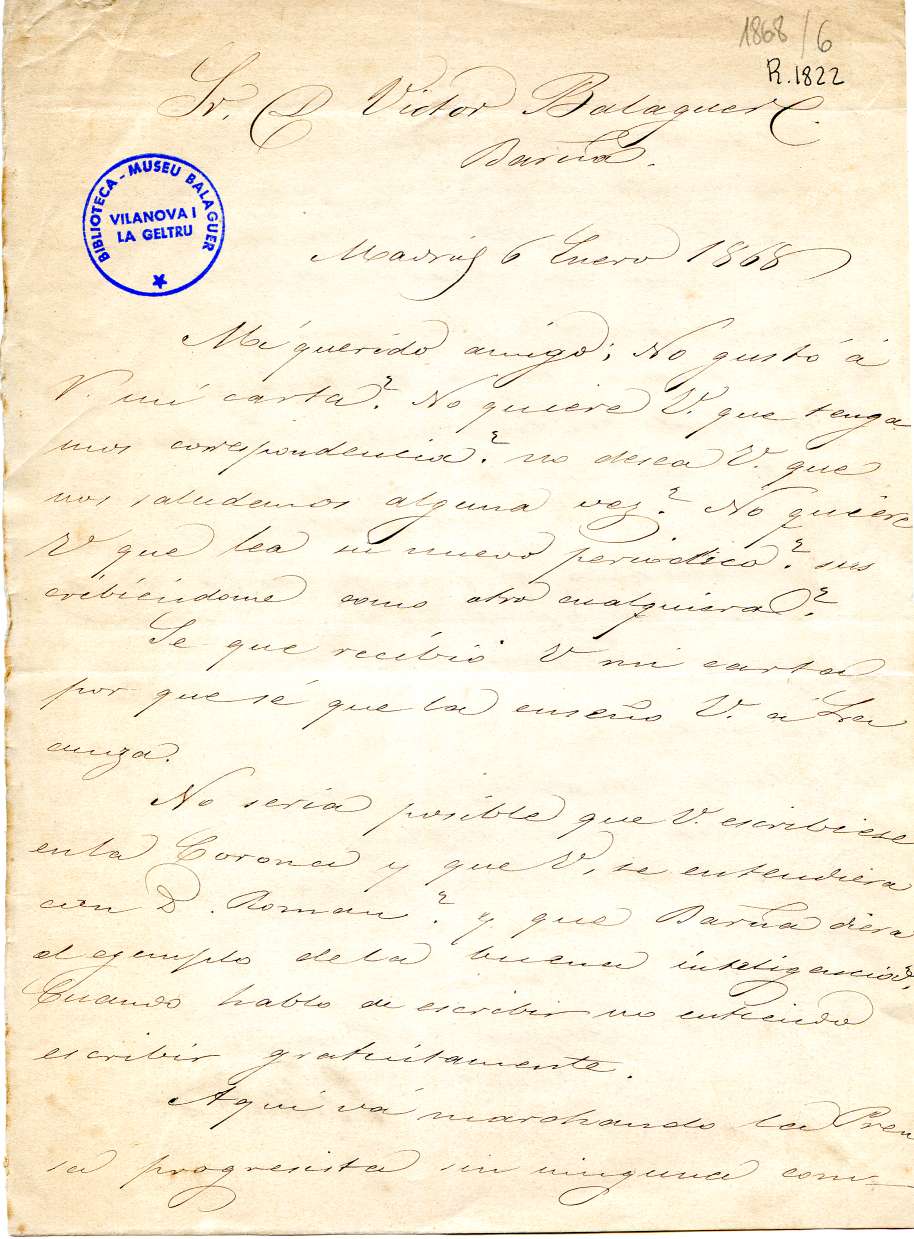 1868/6
R.1822
Sr. D. Victor Balaguer
Barna.
BIBLIOTECA - MUSEU BALAGUER
VILANOVA I
LA GELTRU
Madrid 6 Enero 1868
Mi querido amigo; No gustó á
V. mi carta? No quiere V. que tenga
mos correspondencia? no desea V. que
nos saludemos alguna vez? No quiere
V que lea su nuevo periódico? sus
cribiéndome como otro cualquiera?
Se que recibió V mi carta
por que sé que la enseño V. á
No seria posible que V. escribiese
en la Corona y que V, se entendiera
con D. Roman? y que Barna diera
el ejemplo de la buena inteligencia?
Cuando hablo de escribir no entiendo
escribir gratuitamente.
Aqui vá marchando la Pren
sa progresista sin ninguna com-